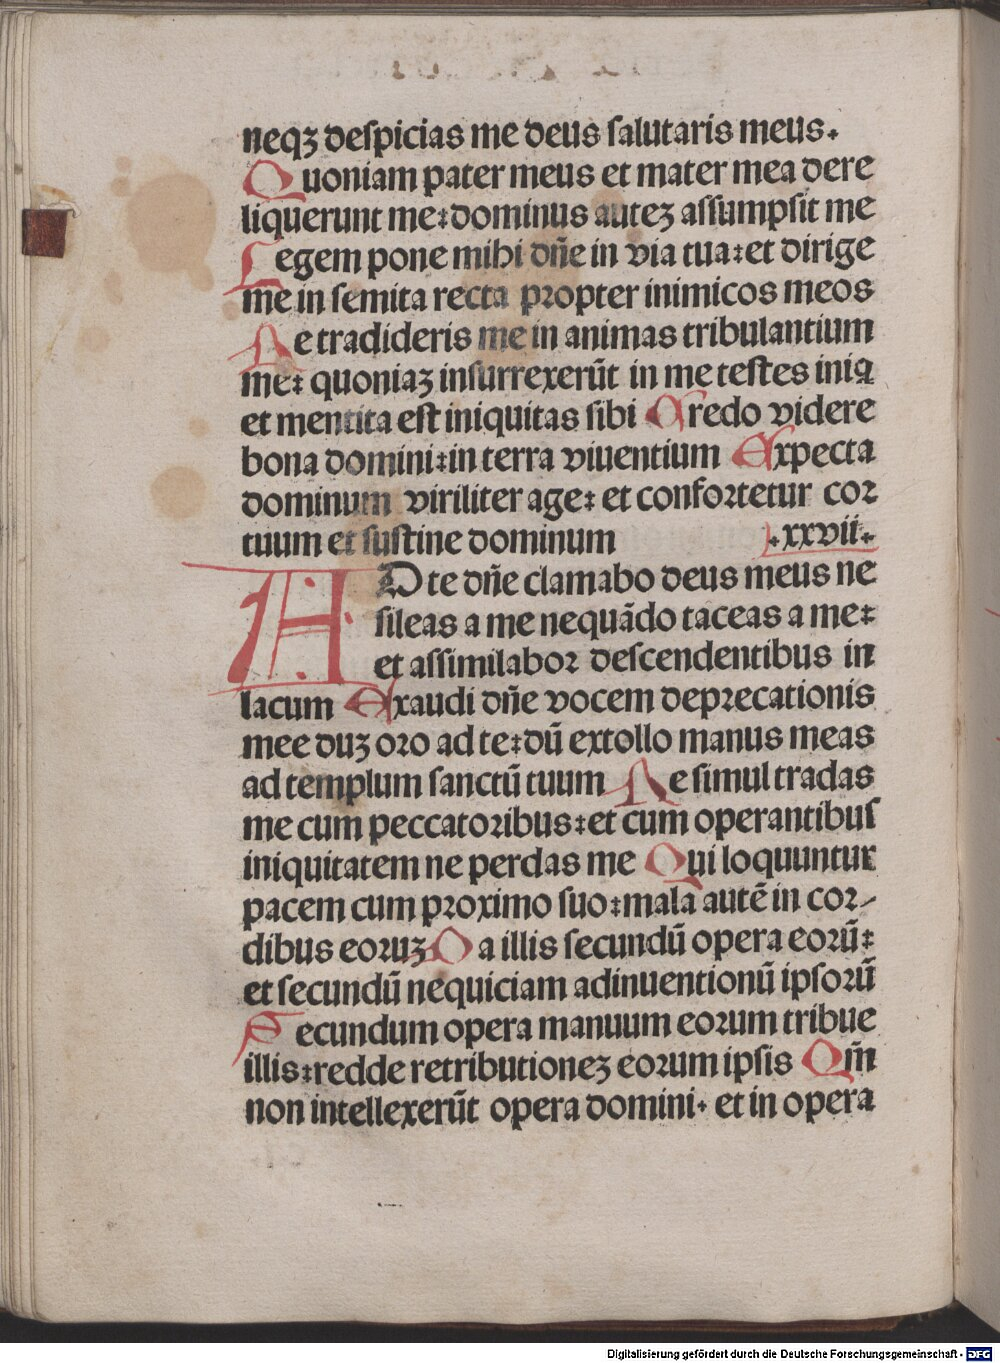 neqꝫ despicias me deus salutaris meus.
Quoniam pater meus et mater mea dere
liquerunt me: dominus auteꝫ assumpsit me
Legem pone mihi dñe in via tua: et dirige
me in semita recta propter inimicos meos
Ne tradideris me in animas tribulantium
me: quoniaꝫ insurrexerūt in me testes iniq
et mentita est iniquitas sibi Credo videre
bona domini: in terra viuentium Expecta
dominum viriliter age: et confortetur cor
tuum et sustine dominum .xxvii.
AD te dñe clamabo deus meus ne
sileas a me nequādo taceas a me:
et assimilabor descendentibus in
lacum Exaudi dñe vocem deprecationis
mee duꝫ oro ad te: dū extollo manus meas
ad templum sanctū tuum Ne simul tradas
me cum peccatoribus: et cum operantibus
iniquitatem ne perdas me Qui loquuntur
pacem cum proximo suo: mala autē in cor/
dibus eoruꝫ Da illis secundū opera eorū:
et secundū nequiciam adinuentionū ipsorū
Secundum opera manuum eorum tribue
illis: redde retributioneꝫ eorum ipsis Qm̄
non intellexerūt opera domini. et in opera
Digitalisierung gefördert durch die Deutsche Forschungsgemeinschaft - DFG